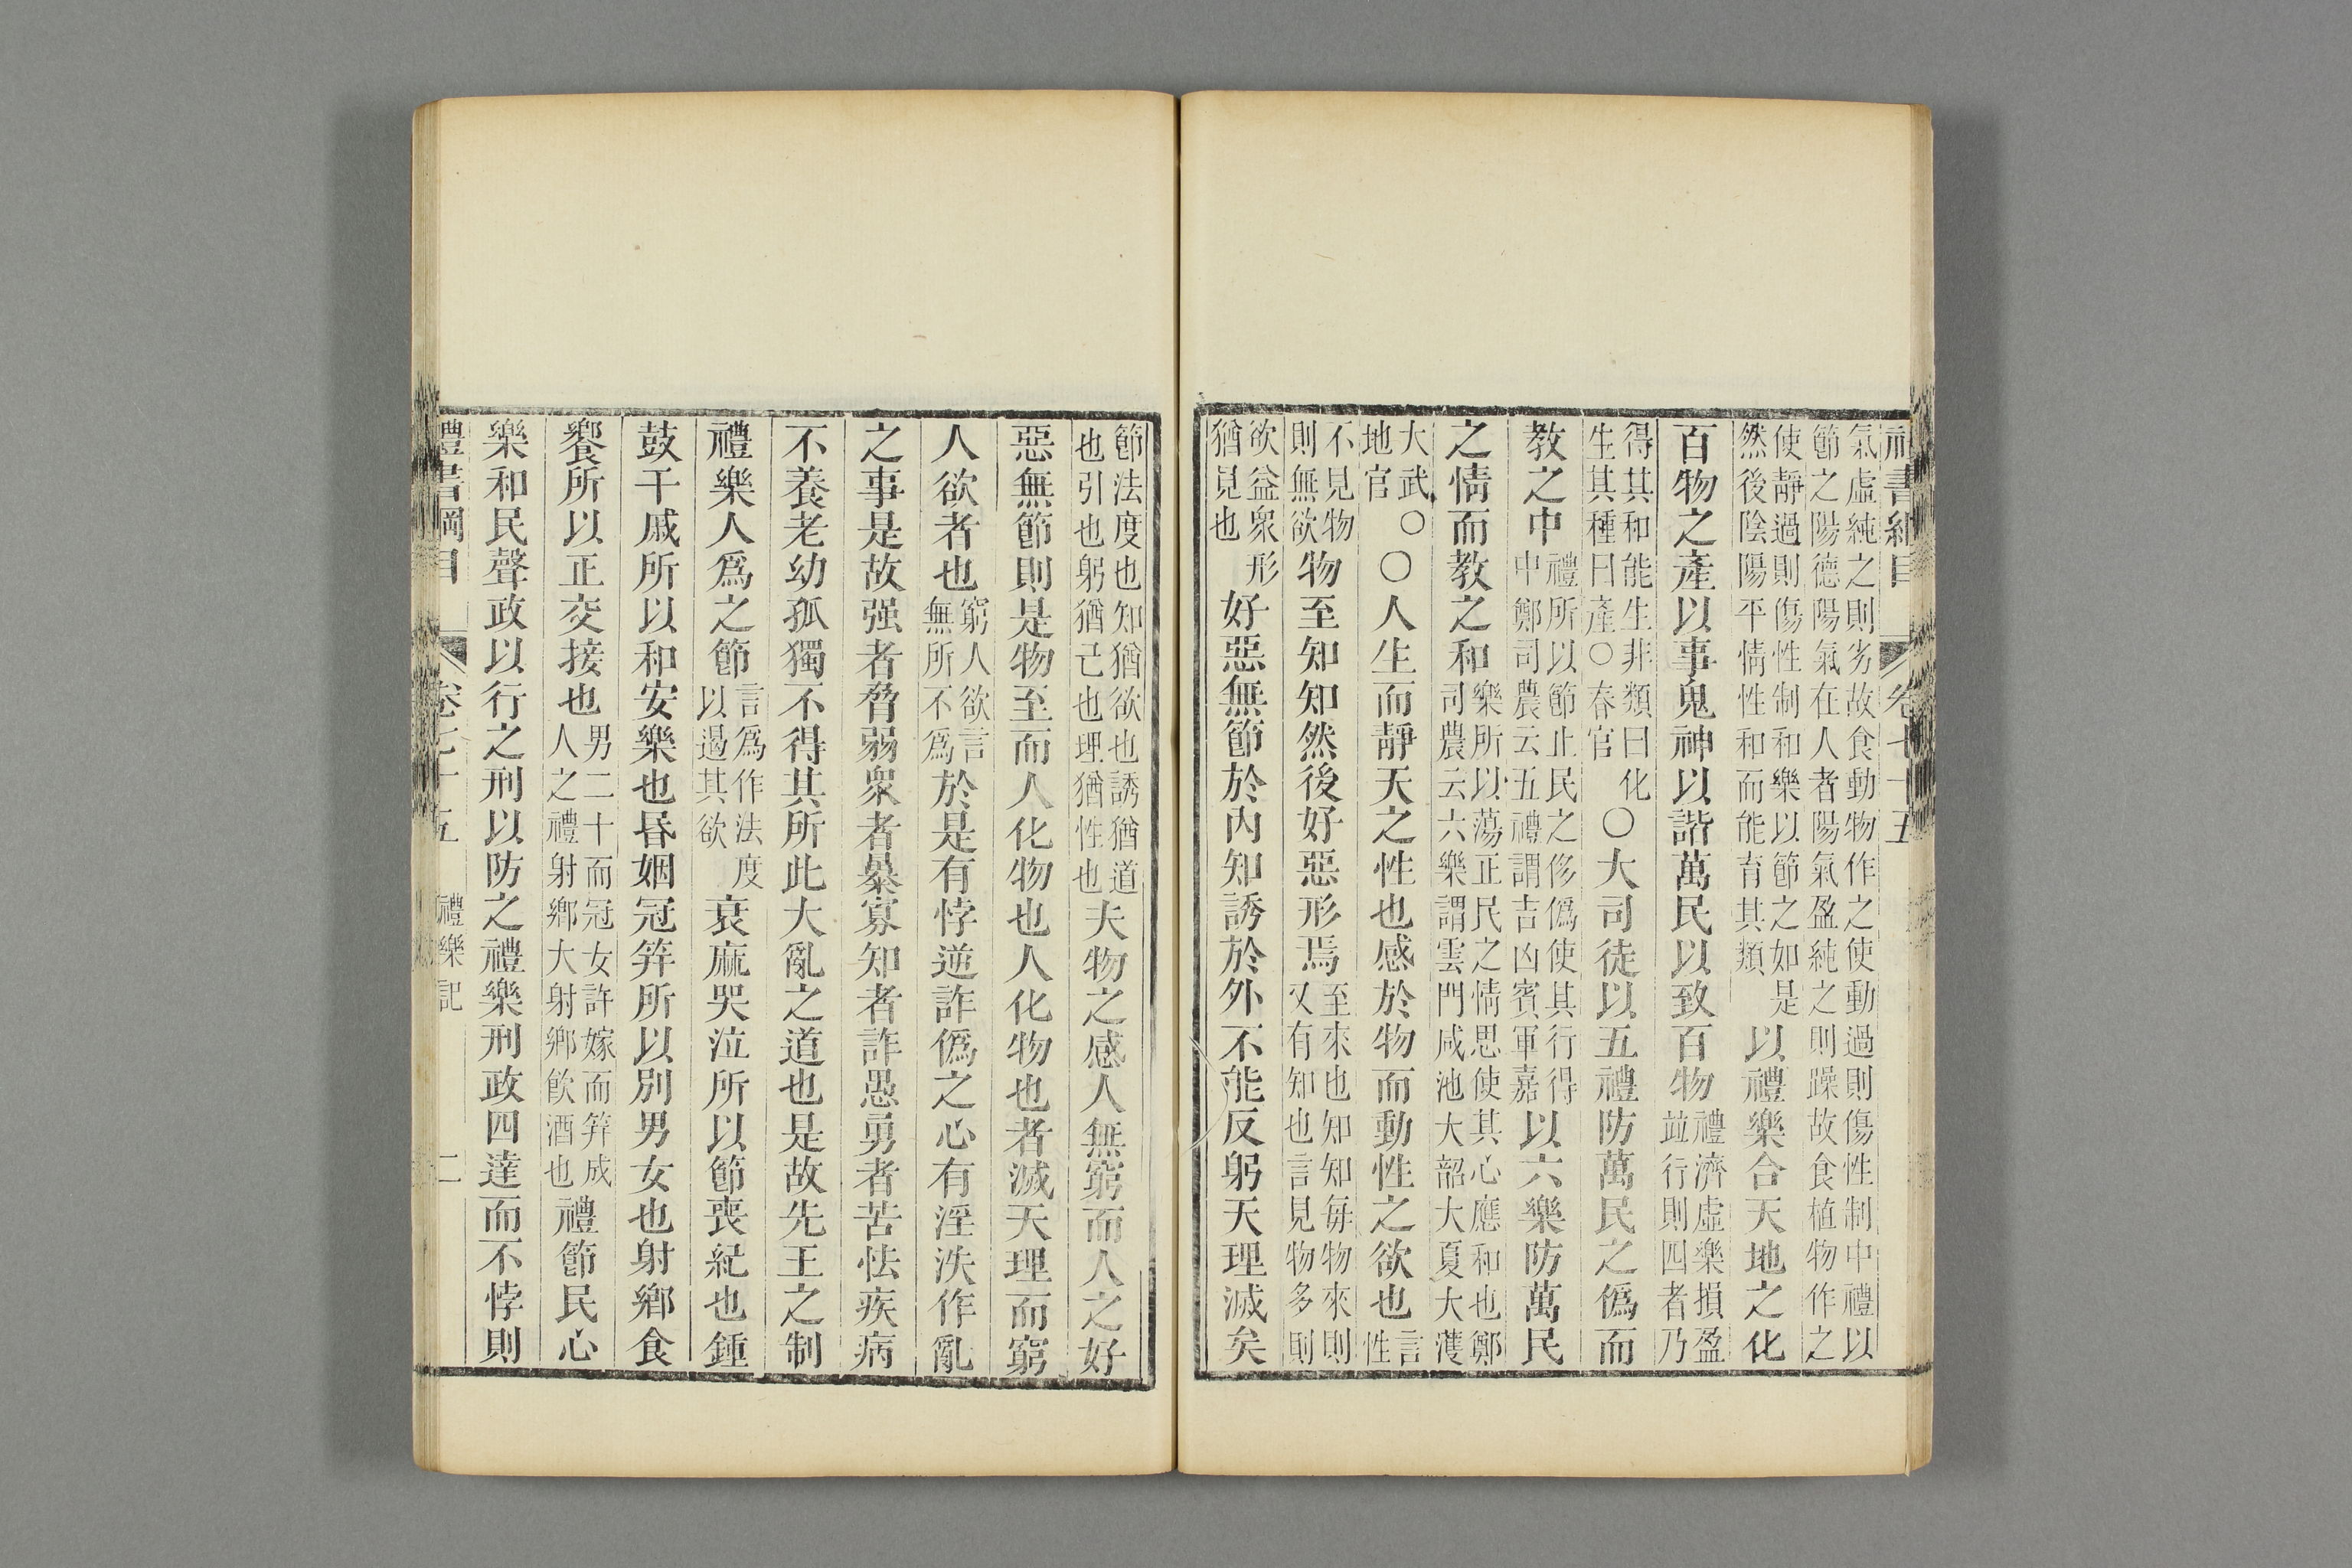 禮書綱目 卷七十五
氣虛純之則劣故食動物作之使動過則傷性制中禮以
節之陽德陽氣在人者陽氣盈純之則躁故食植物作之
使靜過則傷性制和樂以節之如是
然後陰陽平情性和而能育其類
以禮樂合天地之化
百物之產以事鬼神以諧萬民以致百物
禮濟虛樂損盈
並行則四者乃
得其和能生非類曰化
生其種曰產○春官
○大司徒以五禮防萬民之僞而
教之中
禮所以節止民之侈僞使其行得
中鄭司農云五禮謂吉凶賓軍嘉
以六樂防萬民
之情而教之和
樂所以蕩正民之情思使其心應和也鄭
司農云六樂謂雲門咸池大韶大夏大濩
大武○
地官
○人生而靜天之性也感於物而動性之欲也
言
性
不見物
則無欲
物至知知然後好惡形焉
至來也知知每物來則
又有知也言見物多則
欲益衆形
猶見也
好惡無節於內知誘於外不能反躬天理滅矣
節法度也知猶欲也誘猶道
也引也躬猶己也理猶性也
夫物之感人無窮而人之好
惡無節則是物至而人化物也人化物也者滅天理而窮
人欲者也
窮人欲言
無所不爲
於是有悖逆詐僞之心有淫泆作亂
之事是故强者脅弱衆者暴寡知者詐愚勇者苦怯疾病
不養老幼孤獨不得其所此大亂之道也是故先王之制
禮樂人爲之節
言爲作法度
以遏其欲
衰麻哭泣所以節喪紀也鍾
鼓干戚所以和安樂也昏姻冠筓所以別男女也射鄉食
饗所以正交接也
男二十而冠女許嫁而筓成
人之禮射鄉大射鄉飲酒也
禮節民心
樂和民聲政以行之刑以防之禮樂刑政四達而不悖則
禮書綱目 卷七十五 禮樂記 二